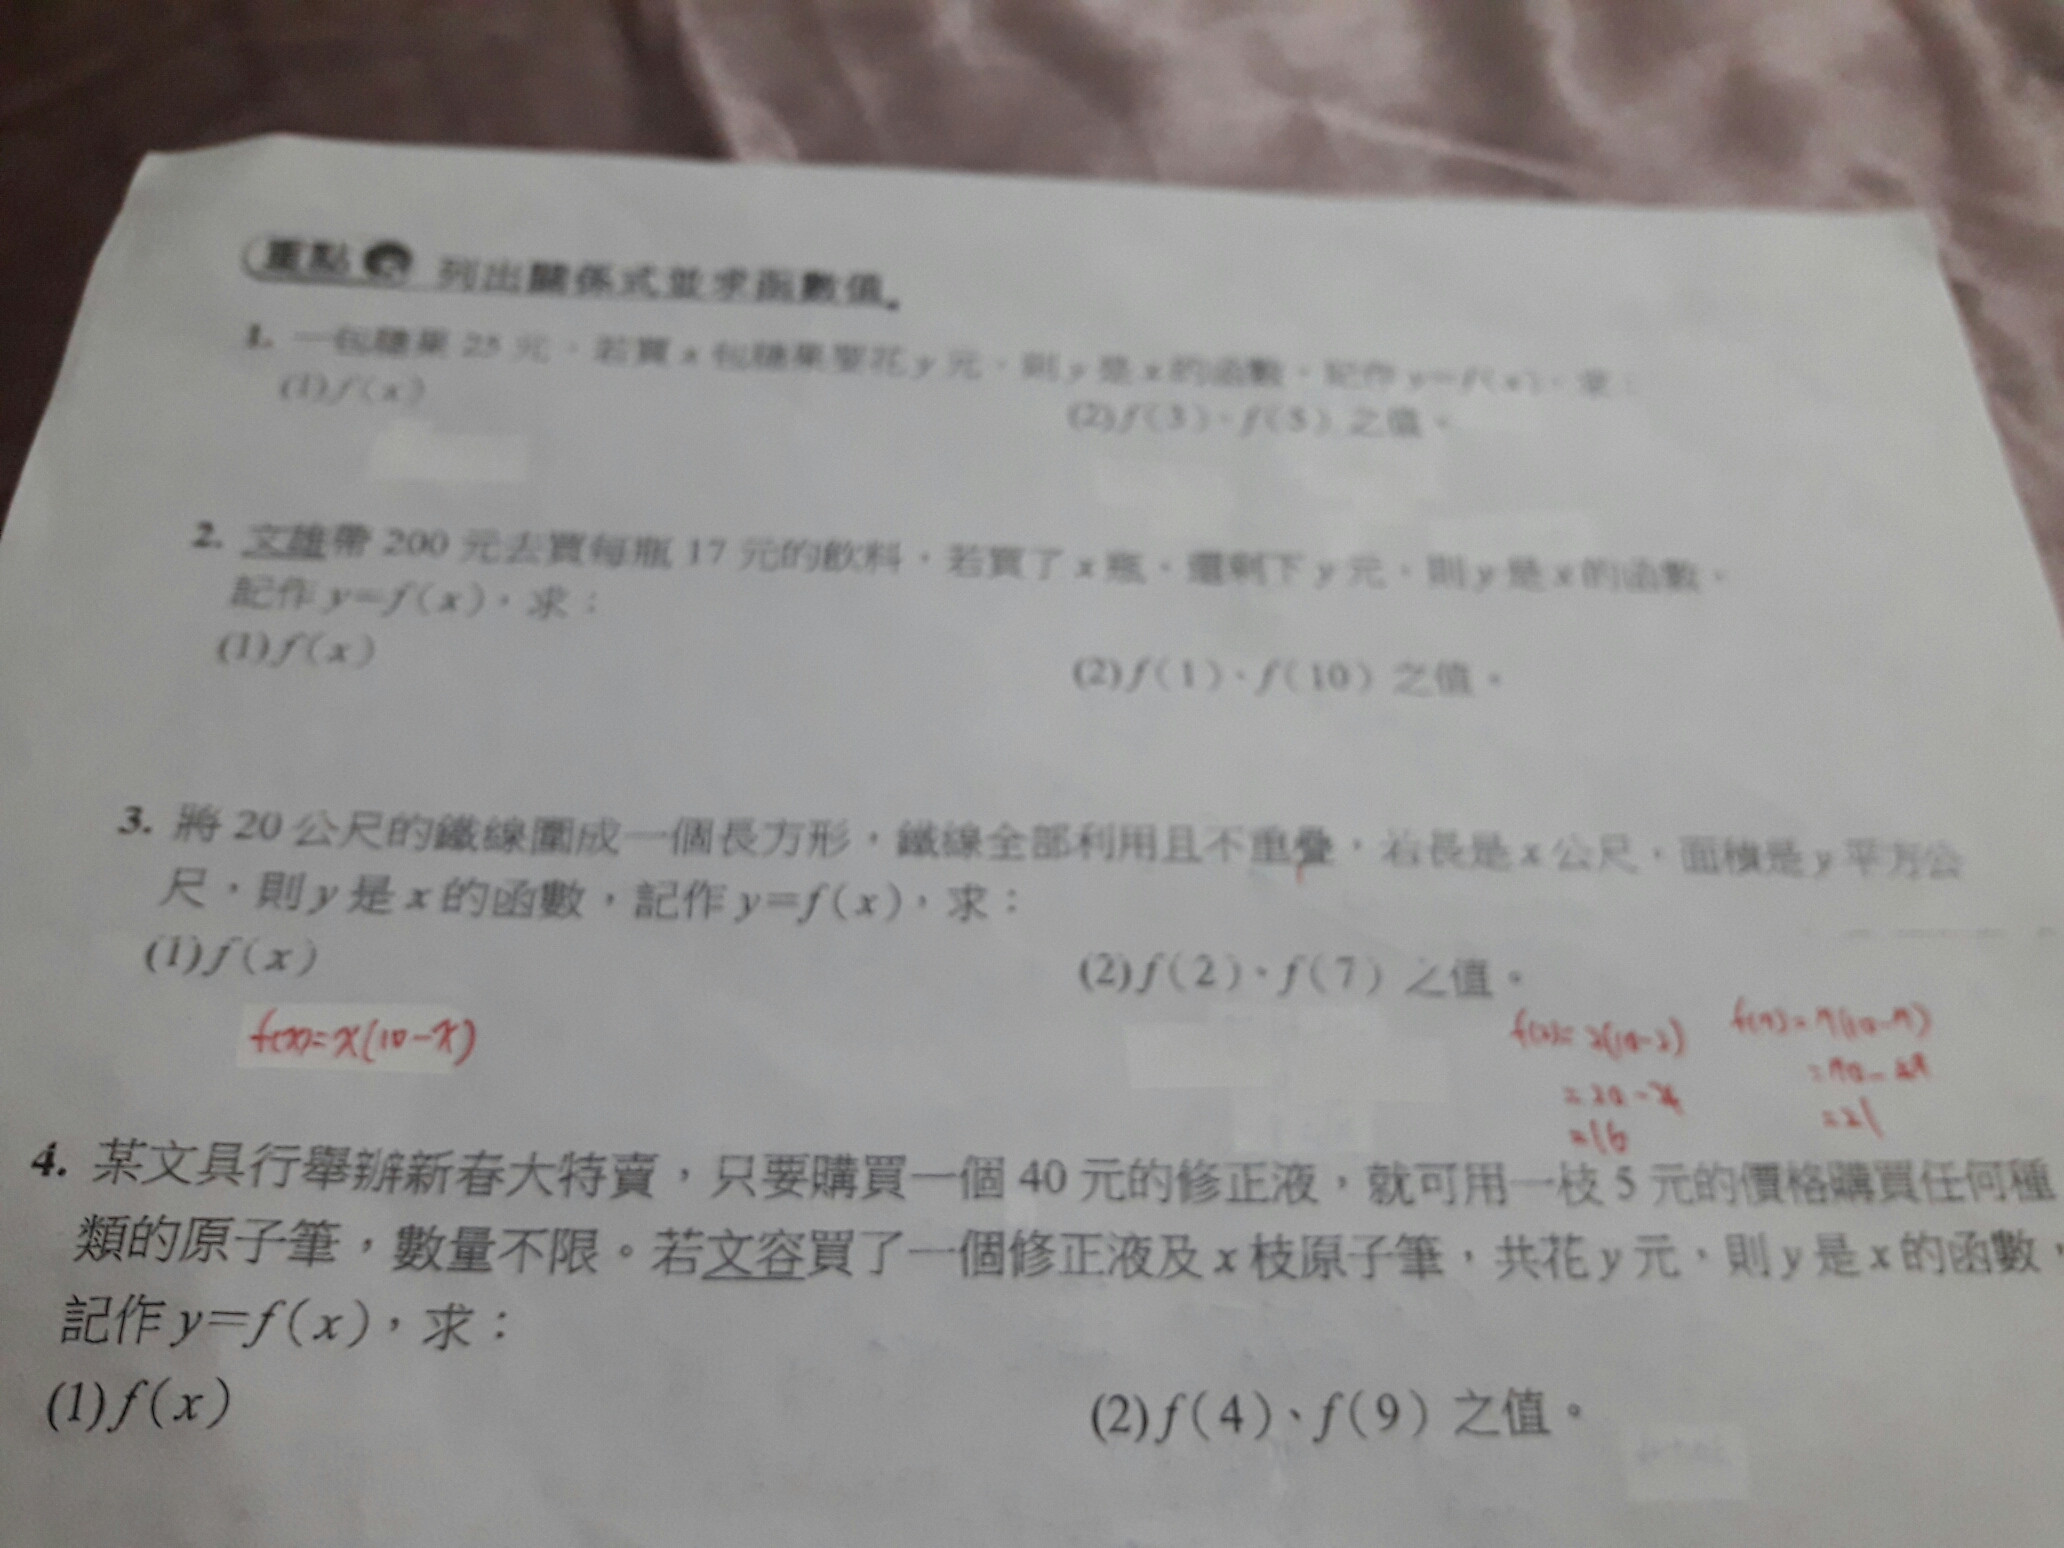 重點 列出關係式並求函數值。
1. 一包糖果 25 元,若買 x 包糖果要花 y 元,則 y 是 x 的函數,記作 y=f(x),求:
(1)f(x) (2)f(3)、f(5) 之值。
2. 文雄帶 200 元去買每瓶 17 元的飲料,若買了 x 瓶,還剩下 y 元,則 y 是 x 的函數,
記作 y=f(x),求:
(1)f(x) (2)f(1)、f(10) 之值。
3. 將 20 公尺的鐵線圍成一個長方形,鐵線全部利用且不重疊,若長是 x 公尺,面積是 y 平方公
尺,則 y 是 x 的函數,記作 y=f(x),求:
(1)f(x) (2)f(2)、f(7) 之值。
f(x)=x(10-x) f(2)=2(10-2) f(7)=7(10-7)
=20-4 =70-49
=16 =21
4. 某文具行舉辦新春大特賣,只要購買一個 40 元的修正液,就可用一枝 5 元的價格購買任何種
類的原子筆,數量不限。若文容買了一個修正液及 x 枝原子筆,共花 y 元,則 y 是 x 的函數,
記作 y=f(x),求:
(1)f(x) (2)f(4)、f(9) 之值。